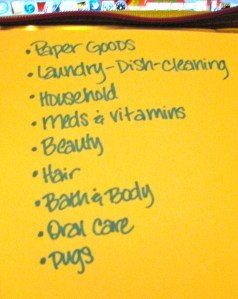 • Paper Goods
• Laundry-Dish-cleaning
• Household
• Meds & vitamins
• Beauty
• Hair
• Bath & Body
• Oral Care
• Pugs